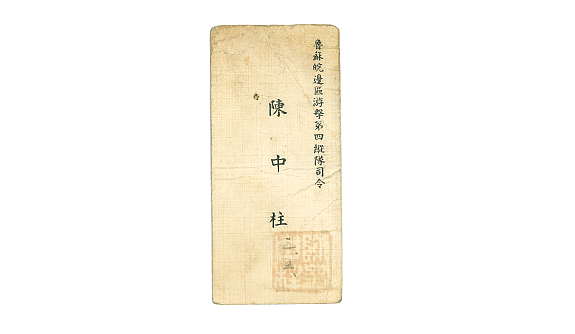 魯蘇皖邊區游擊第四縱隊司令
陳中柱